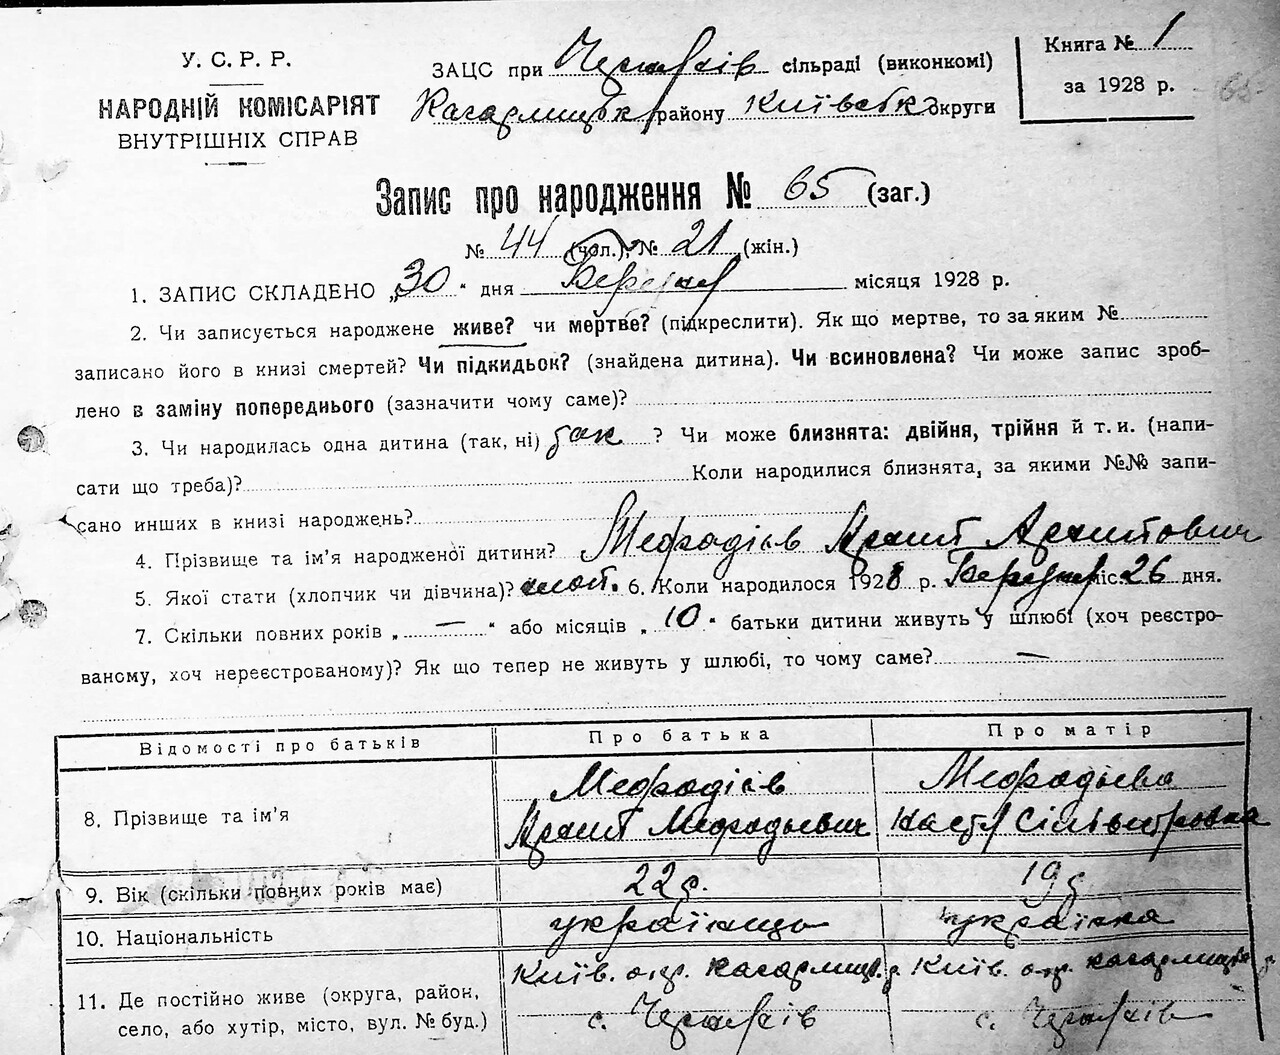 У. С. Р. Р.
НАРОДНІЙ КОМІСАРІЯТ
ВНУТРІШНІХ СПРАВ
ЗАЦС при сільраді (виконкомі)
Кагарлицьк району Київськ округи
Книга № 1
за 1928 р.
65
Запис про народження № 65 (заг.)
№ 44 (чол.), № 21 (жін.)
1. ЗАПИС СКЛАДЕНО „30“ дня Березня місяця 1928 р.
2. Чи записується народжене живе? чи мертве? (підкреслити). Як що мертве, то за яким №
записано його в книзі смертей? Чи підкидьок? (знайдена дитина). Чи всиновлена? Чи може запис зроб-
лено в заміну попереднього (зазначити чому саме)?
3. Чи народилась одна дитина (так, ні) так ? Чи може близнята: двійня, трійня й т. и. (напи-
сати що треба)? Коли народилися близнята, за якими №№ запи-
сано инших в книзі народжень?
4. Прізвище та ім’я народженої дитини? Мефодіїв
5. Якої стати (хлопчик чи дівчина)? 6. Коли народилося 1928 р. Березня міс. 26 дня.
7. Скільки повних років „—“ або місяців „10“ батьки дитини живуть у шлюбі (хоч реєстро-
ваному, хоч нереєстрованому)? Як що тепер не живуть у шлюбі, то чому саме? —
Відомості про батьків Про батька Про матір
8. Прізвище та ім’я
Мефодіїв Мефодьєва
Мефодьевич Настя Сілівестровна
9. Вік (скільки повних років має) 22 р. 19 р.
10. Національність українець українка
11. Де постійно живе (округа, район,
село, або хутір, місто, вул. № буд.)
Київ. окр. Кагарлиц. р Київ. окр. Кагарлицьк р
с. с.